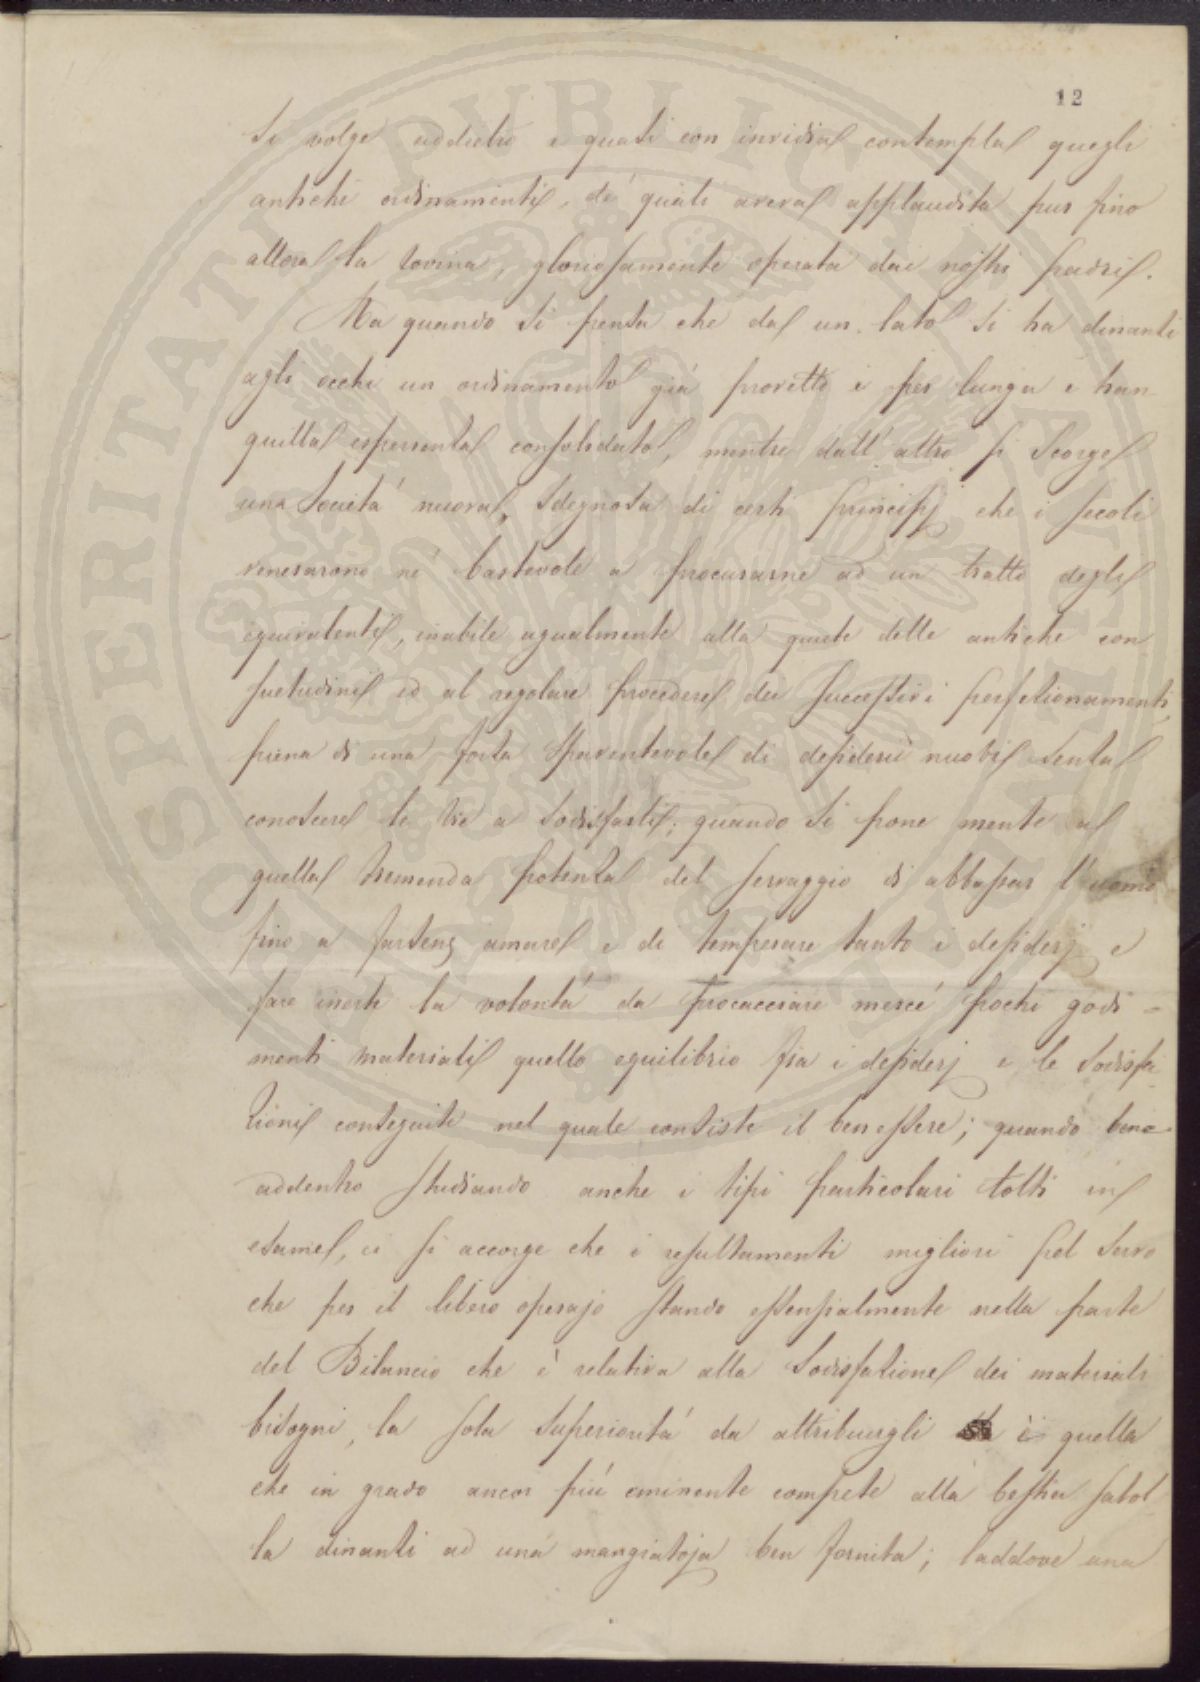 12
si volge addietro e quasi con invidia contempla quegli
antichi ordinamenti, de' quali aveva applaudita pur fino
allora la rovina, gloriosamente operata dai nostri padri.
Ma quando si pensa che da un lato si ha dinanti
agli occhi un ordinamento già provetto e per lunga e tran-
quilla esperienza consolidato, mentre dall'altro si scorge
una società nuova, sdegnosa di certi principj che i secoli
venerarono nè bastevole a procurarne ad un tratto degli
equivalenti, inabile ugualmente alla quiete delle antiche con
suetudini ed al regolare procedere dei successivi perfezionamenti,
piena di una forza spaventevole di desiderii nuovi senza
conoscere le vie a sodisfarli; quando si pone mente a
quella tremenda potenza del servaggio di abbassar l'uomo
fino a farsene amare e di temperare tanto i desiderj e
fare inerte la volontà da procacciare mercè pochi godi=
menti materiali quello equilibrio fra i desiderj e le sodisfa
zioni conseguite nel quale consiste il ben essere; quando bene
addentro studiando anche i tipi particolari tolti in
esame, ci si accorge che i resultamenti migliori pel servo
che per il libero operajo stando essenzialmente nella parte
del Bilancio che è relativa alla sodisfazione dei materiali
bisogni, la sola superiorità da attribuirgli è quella
che in grado ancor più eminente compete alla bestia satol-
la dinanzi ad una mangiatoja ben fornita; laddove una
PROSPERITATI PVBLICAE